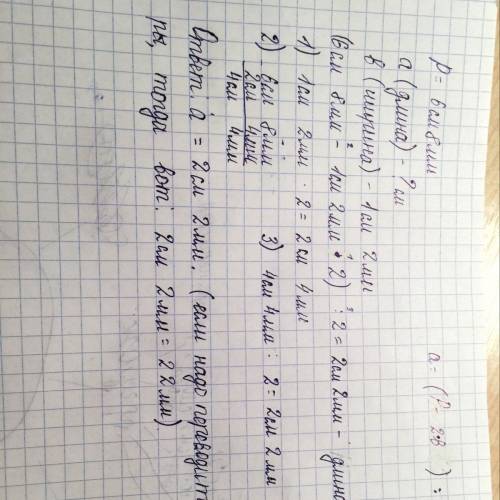 P = 6см 8мм
a = (P - 2в) :
а (длина) - ? см
в (ширина) - 1см 2мм
(6см 8мм - 1см 2мм · 2) : 2 = 2см 2мм - длин
1) 1см 2мм · 2 = 2см 4мм
2) 6см 8мм
2см 4мм
4см 4мм
3) 4см 4мм : 2 = 2см 2мм
Ответ: а = 2см 2мм. (если надо переводит
ры, тогда вот: 2см 2мм = 22мм)